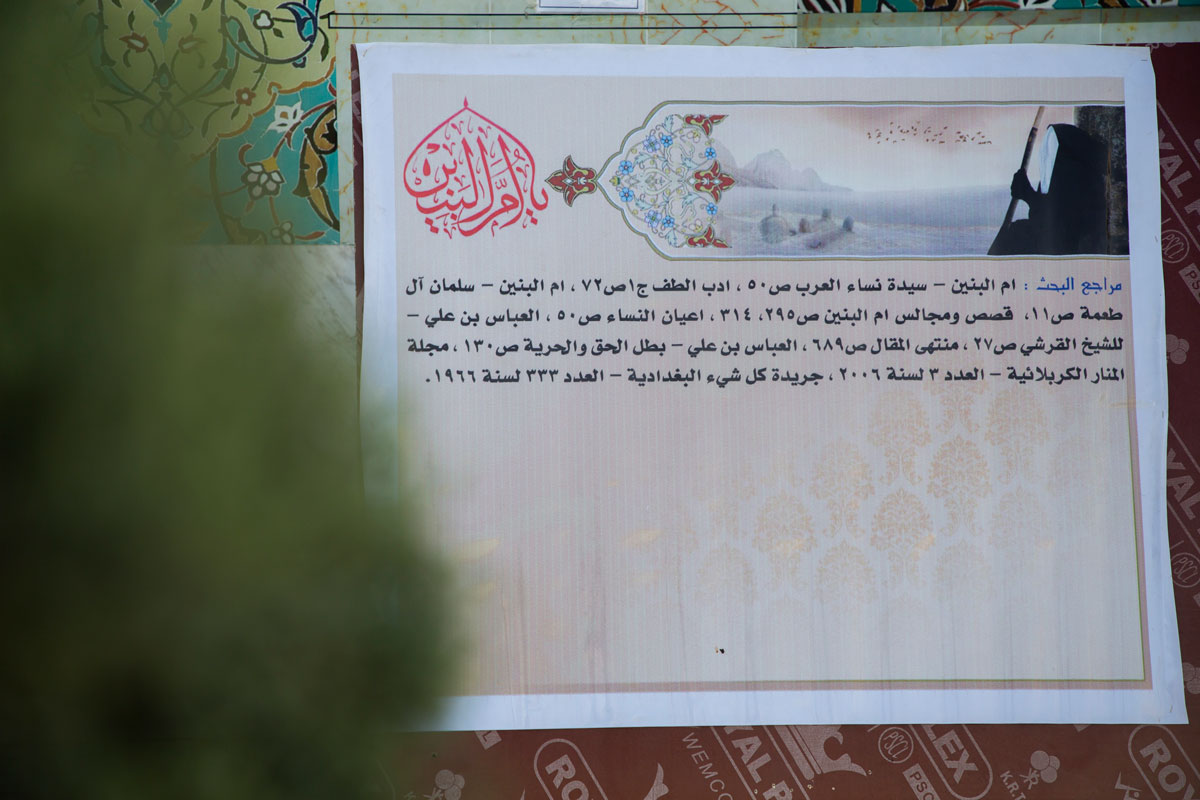 يا أم البنين
مراجع البحث : ام البنين – سيدة نساء العرب ص٥٠ ، ادب الطف ج١ص٧٢ ، ام البنين – سلمان آل
طعمة ص١١، قصص ومجالس ام البنين ص٢٩٥، ٣١٤ ، اعيان النساء ص٥٠ ، العباس بن علي –
للشيخ القرشي ص٢٧ ، منتهى المقال ص٦٨٩ ، العباس بن علي – بطل الحق والحرية ص١٣٠ ، مجلة
المنار الكربلائية – العدد ٣ لسنة ٢٠٠٦ ، جريدة كل شيء البغدادية – العدد ٣٣٣ لسنة ١٩٦٦ .
WEMCO
PSC
K.R.T